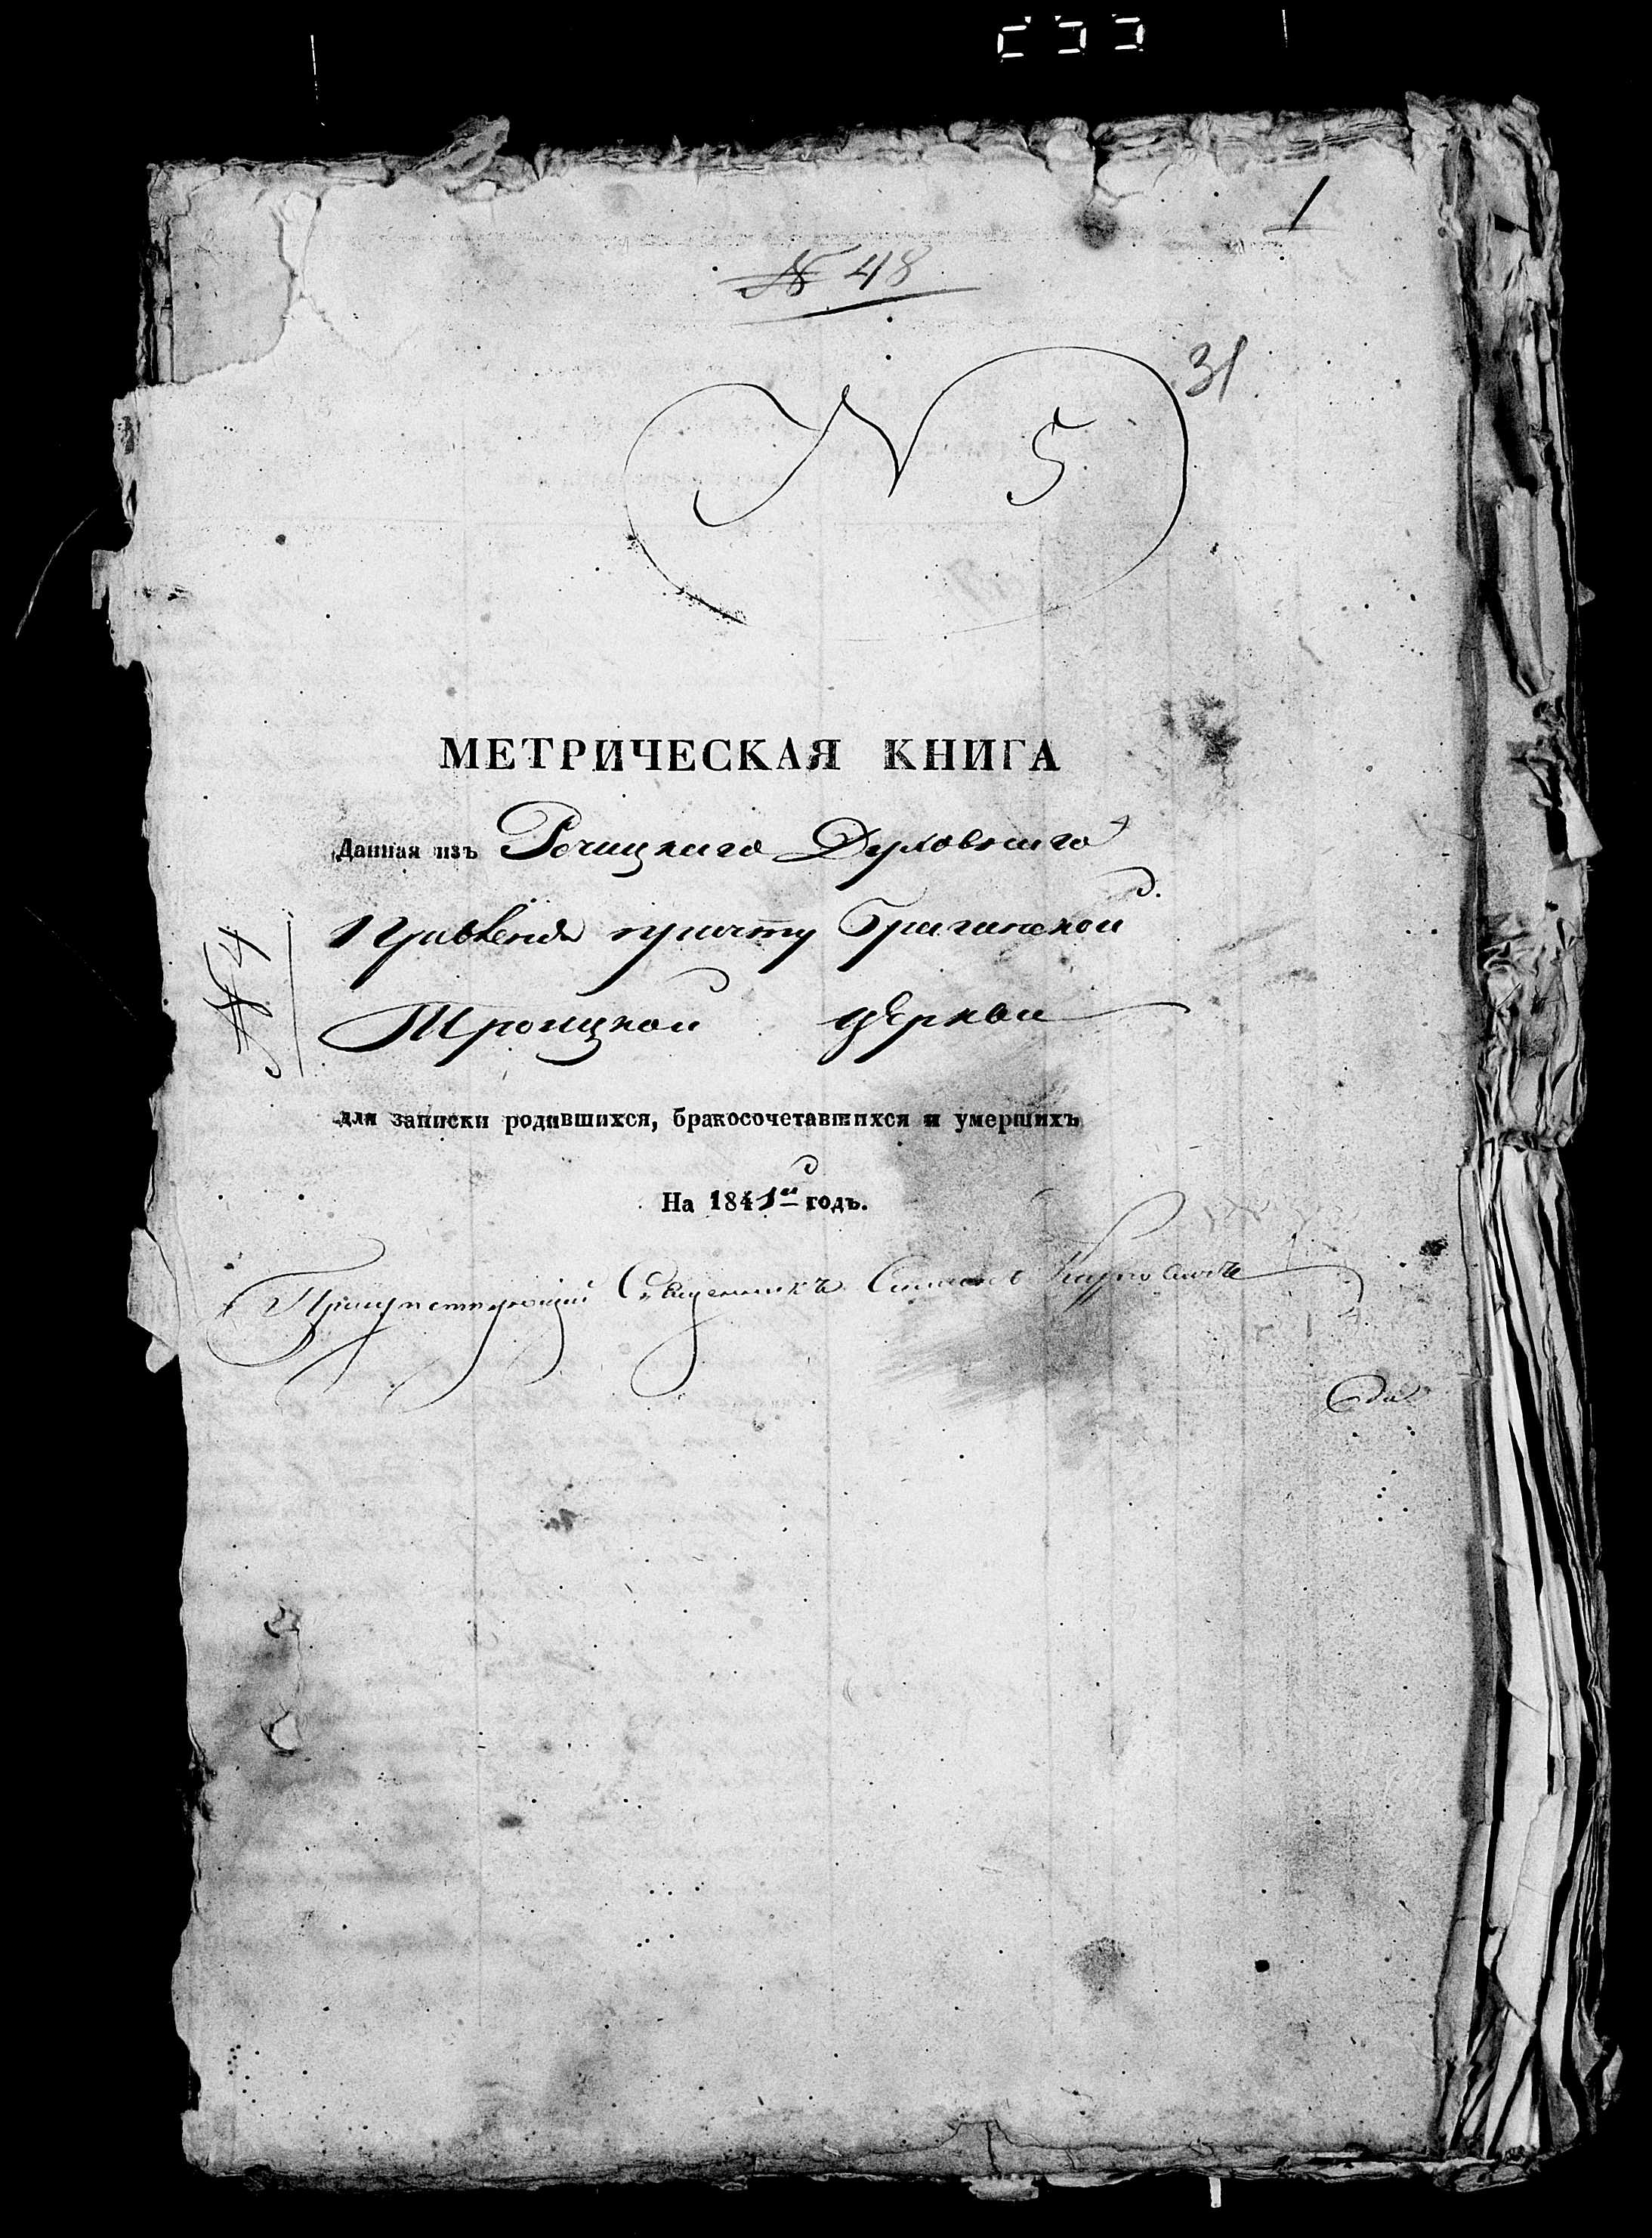 1
№ 48
31
N 5
МЕТРИЧЕСКАЯ КНИГА
Данная изъ Речицкаго Духовнаго
Правленія причту Брагинской
№ 4
Троицкой церкви
для записки родившихся, бракосочетавшихся и умершихъ
На 1841й годъ.
Присутствующій Священникъ Симеонъ Карповичъ